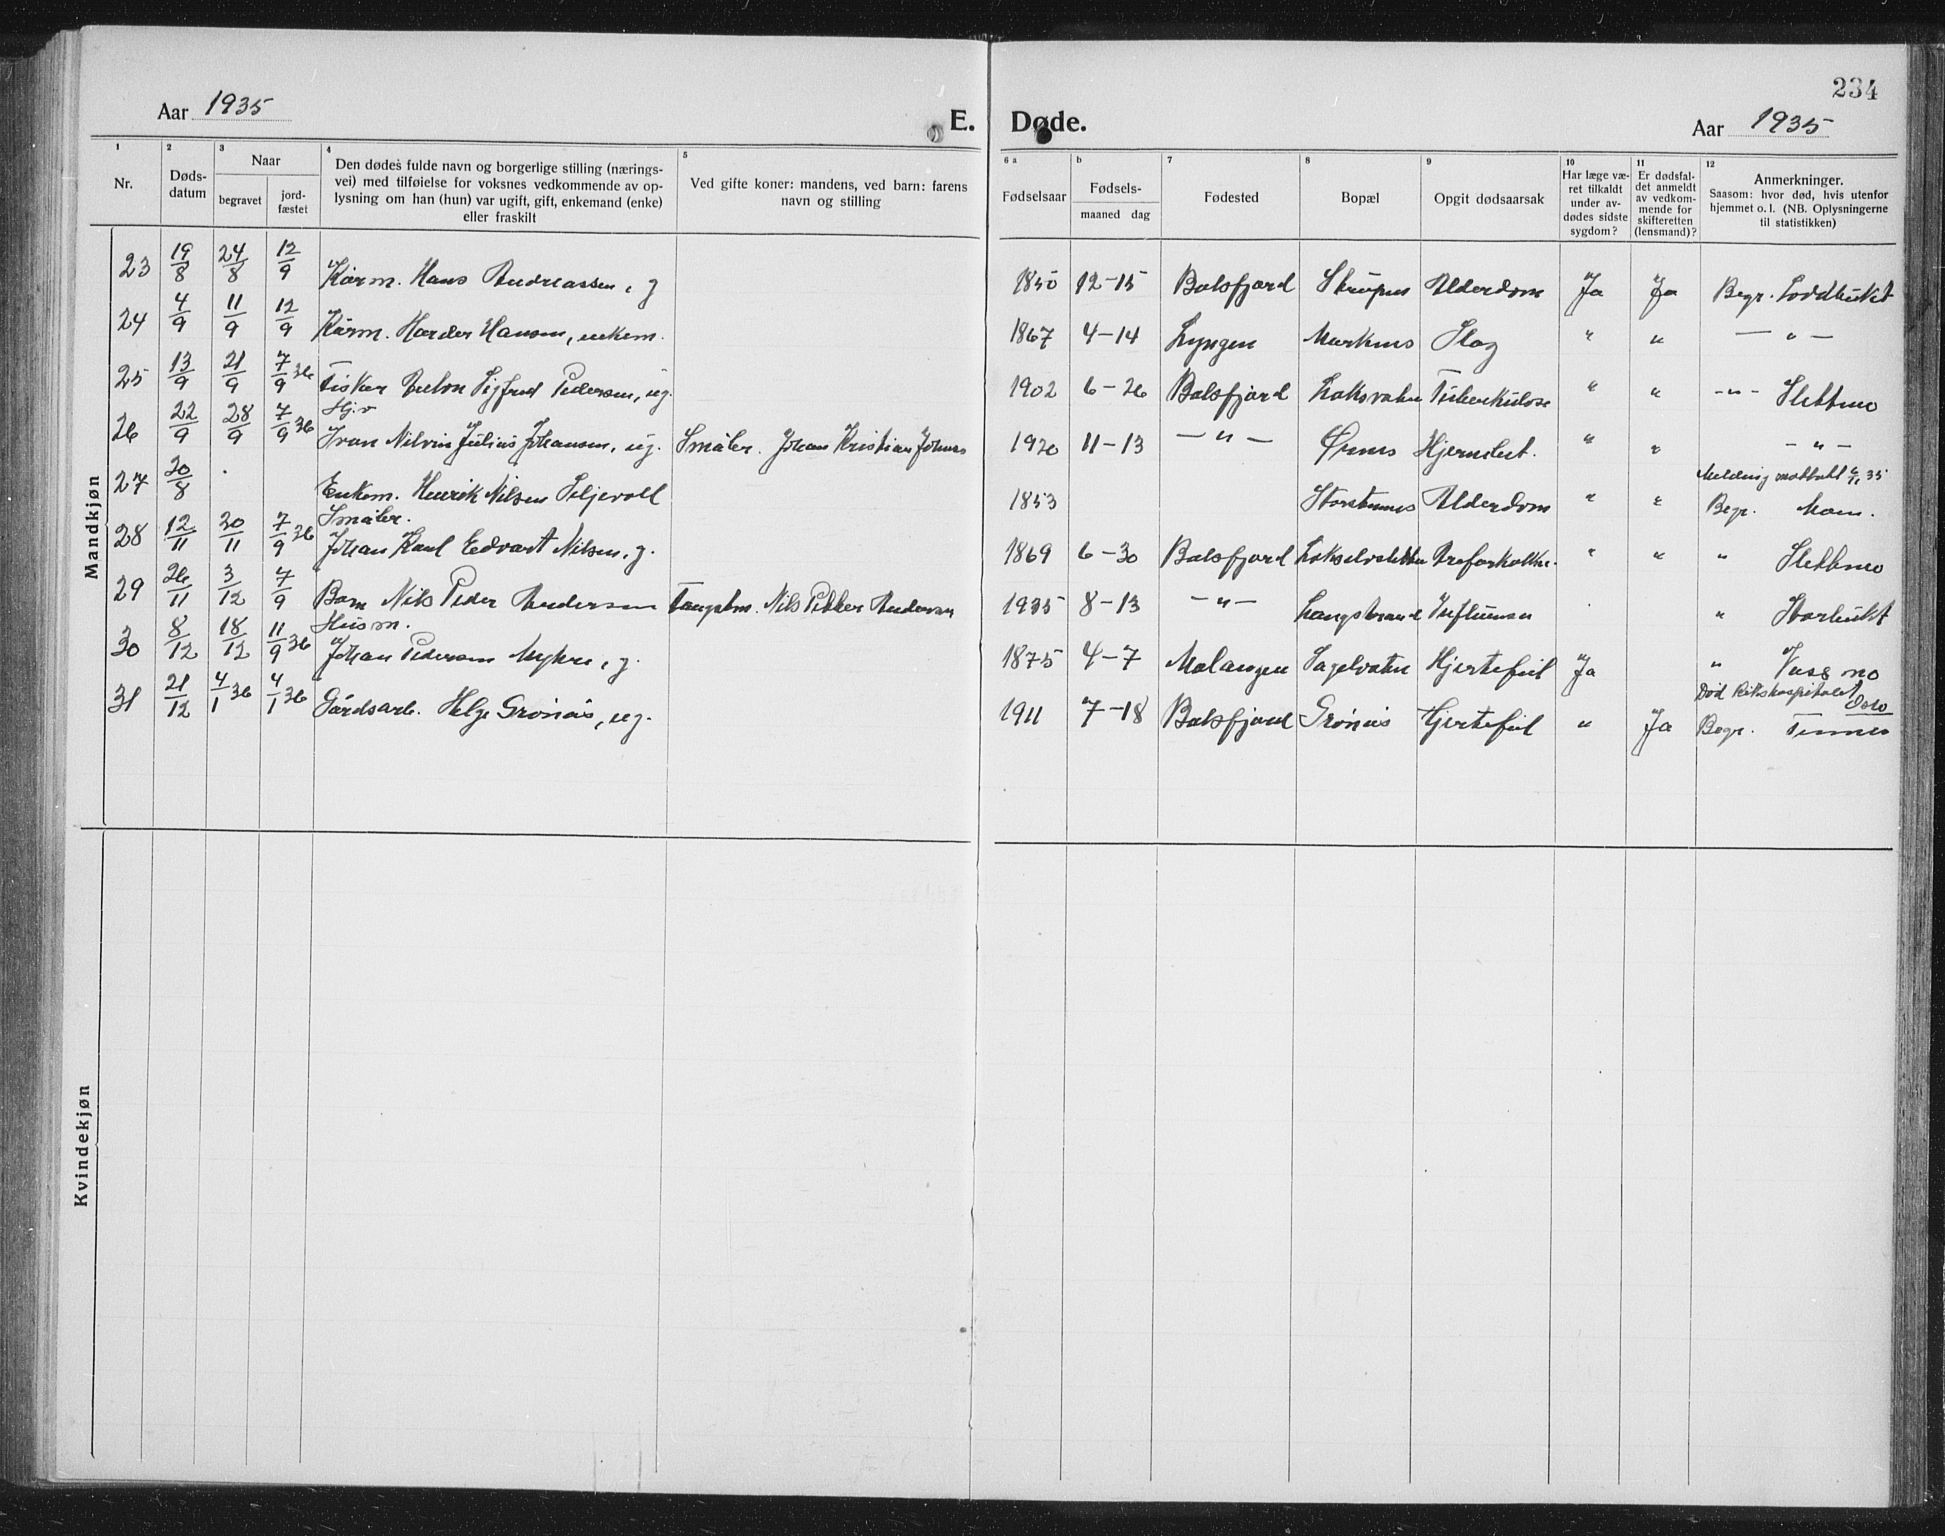 234
Aar 1935
E. Døde.
Aar 1935
1 2 3 4 5 6 a b 7 8 9 10 11 12
Nr.
Døds-
datum
Naar
begravet
jord-
fæstet
Den dødes fulde navn og borgerlige stilling (nærings-
vei) med tilføielse for voksnes vedkommende av op-
lysning om han (hun) var ugift, gift, enkemand (enke)
eller fraskilt
Ved gifte koner: mandens, ved barn: farens
navn og stilling
Fødselsaar
Fødsels-
maaned dag
Fødested
Bopæl
Opgit dødsaarsak
Har læge væ-
ret tilkaldt
under av-
dødes sidste
sygdom?
Er dødsfal-
det anmeldt
av vedkom-
mende for
skifteretten
(lensmand)?
Anmerkninger.
Saasom: hvor død, hvis utenfor
hjemmet o. l. (NB. Oplysningerne
til statistikken)
Mandkjøn
23 19/8 24/8 12/9 Kårm. Hans Andreassen, g 1850 12-15 Balsfjord Alderdom Ja Ja Begr. Loddbukt
24 4/9 11/9 12/9 Kårm. Harder Hansen, enkem. 1867 4-14 Lyngen Marknes Slag " " — " —
25 13/9 21/9 7/9 36 Fisker Anton Sigfred Pedersen, ug. 1902 6-26 Balsfjord Laksvatn Tuberkulose " " - " - Slettmo
Hj.v
26 22/9 28/9 7/9 36 Ivan Nilvin Julius Johansen, ug. Småbr. Johan Kristian Johans 1920 11-13 — " — Ørnes Hjernebet. " " - " -
Melding mottatt 35
27 20/8 Enkem. Henrik Nilsen Seljevoll 1853 Storstennes Alderdom " " Begr. Moen.
Småbr.
28 12/11 20/11 7/9 36 Johan Karl Edvart Nilsen, g. 1869 6-30 Balsfjord Lakselvsletten Areforkalkn. " " " Slettmo
29 26/11 3/12 7/9 Barn Nils Peder Andersen Fangstm. Nils Petter Andersen 1935 8-13 - " - Langstrand Influensa " Storbukt
Husm.
30 8/12 18/12 11/9 36 Johan Pedersen Myhre, g. 1875 4-7 Malangen Sagelvatn Hjertefeil Ja "
Død Rikshospitalet
Oslo
31 21/12 4/1 36 4/1 36 Gårdsarb. Helge Grønås, ug. 1911 7-18 Balsfjord Grønås Hjertefeil " Ja Begr. Tennes
Kvindekjøn